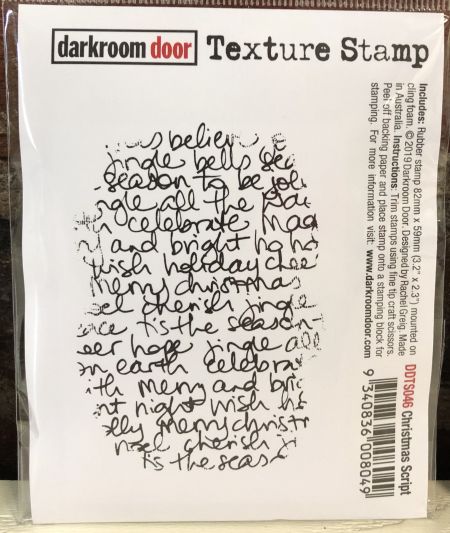 darkroom door Texture Stamp
s believe
jingle bells sea
season to be jol
ngle all the
celebrate mag
and bright ho ho
wish holiday cheer
merry christmas
el cherish jingle
ace tis the season
eer hope jingle all
on earth celebra
ith merry and bri
nt night wish
lly merry christ
noel cherish ji
tis the seas
Includes: Rubber stamp 82mm x 59mm (3.2" x 2.3") mounted on
cling foam. © 2019 Darkroom Door. Designed by Rachel Greig. Made
in Australia. Instructions: Trim stamps using fine tip craft scissors.
Peel off backing paper and place stamp onto a stamping block for
stamping. For more information visit: www.darkroomdoor.com
DDTS046 Christmas Script
9 340836 008049